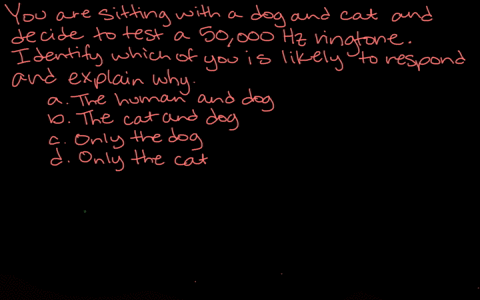 You are sitting with a dog and cat and
decide to test a 50,000 Hz ringtone.
Identify which of you is likely to respond
and explain why.
a. The human and dog
b. The cat and dog
c. Only the dog
d. Only the cat